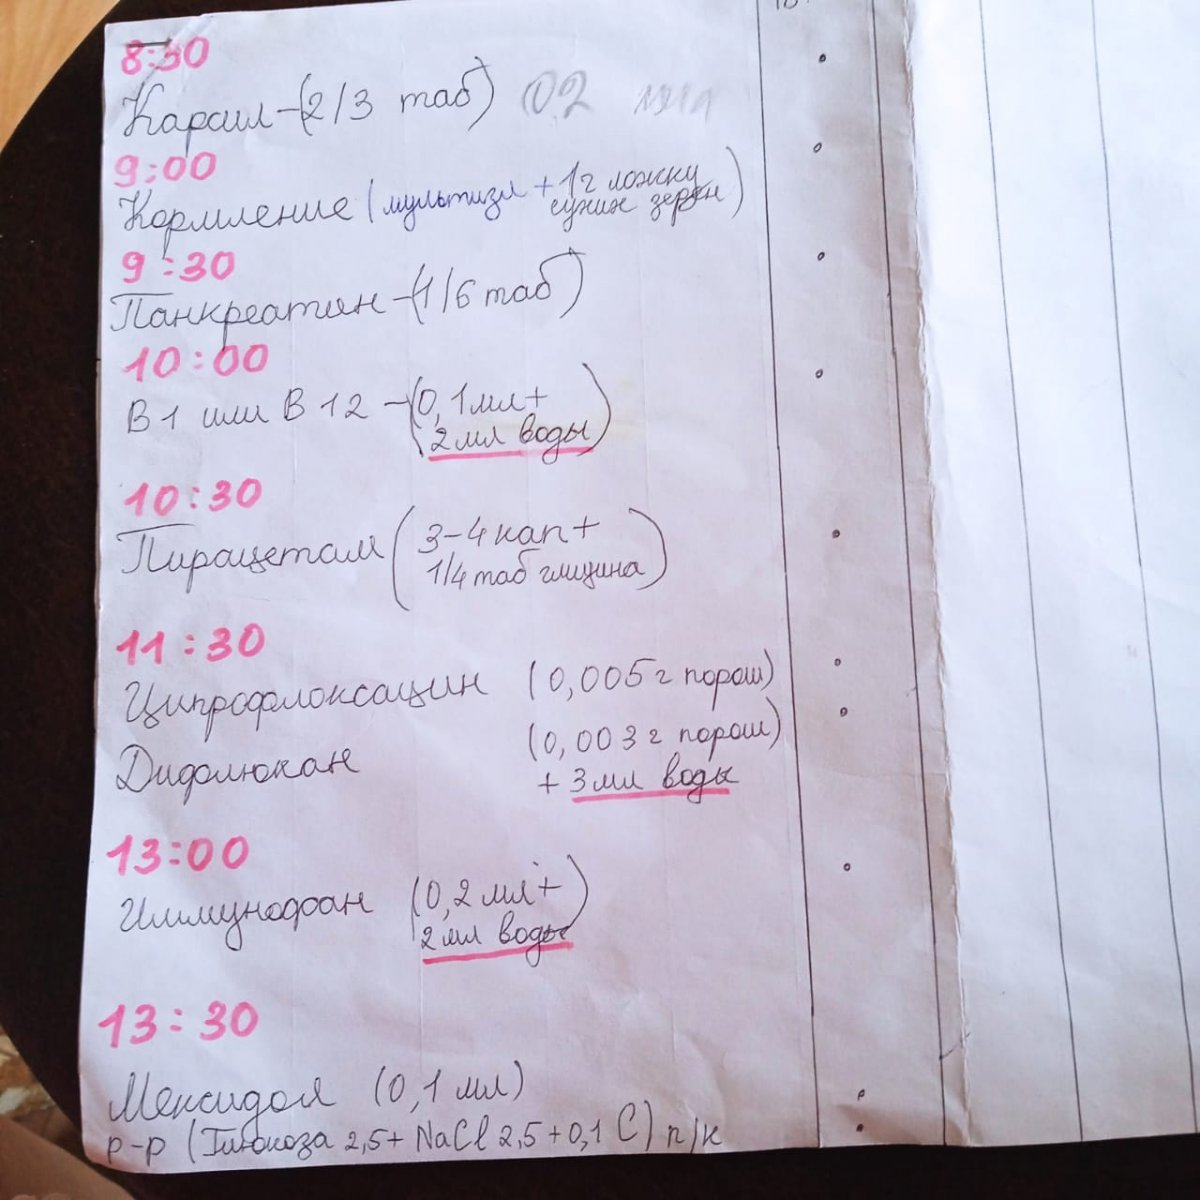 8:30
Карсил-(2/3 таб) 0.2
9:00
Кормление (мультизл + 1г ложку
сухих зерен)
9:30
Панкреатин-(1/6 таб)
10:00
В1 или В12 -(0,1мл+
2мл воды)
10:30
Пирацетам (3-4 кап+
1/4 таб глицина)
11:30
Ципрофлоксацин (0,005г порош)
Дифлюкан (0,003г порош)
+ 3мл воды
13:00
Иммунофан (0,2 мл+
2 мл воды)
13:30
Мексидол (0,1 мл)
р-р (Глюкоза 2,5+ NaCl 2,5+0,1 С) п/к